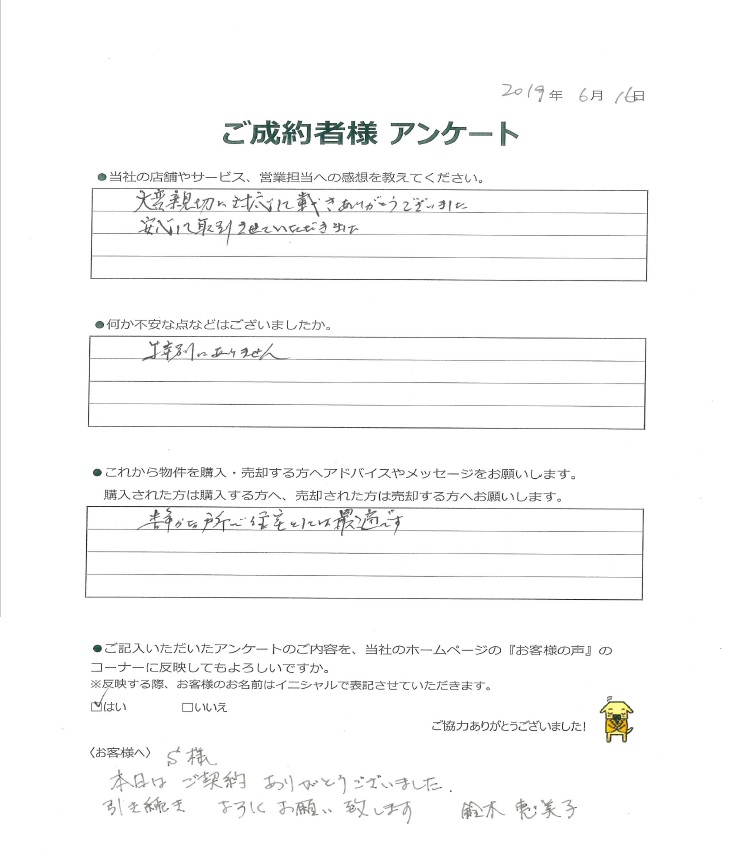 2019年 6月 16日
ご成約者様 アンケート
●当社の店舗やサービス、営業担当への感想を教えてください。
大変親切に対応して戴きありがとうございました
安心して取引させていただきました
●何か不安な点などはございましたか。
特別にありません
●これから物件を購入・売却する方へアドバイスやメッセージをお願いします。
購入された方は購入する方へ、売却された方は売却する方へお願いします。
静かな所で住宅としては最適です
●ご記入いただいたアンケートのご内容を、当社のホームページの『お客様の声』の
コーナーに反映してもよろしいですか。
※反映する際、お客様のお名前はイニシャルで表記させていただきます。
☑はい □いいえ
ご協力ありがとうございました!
〈お客様へ〉 S様
本日は ご契約 ありがとうございました.
引き続き よろしくお願い致します 鈴木 恵美子